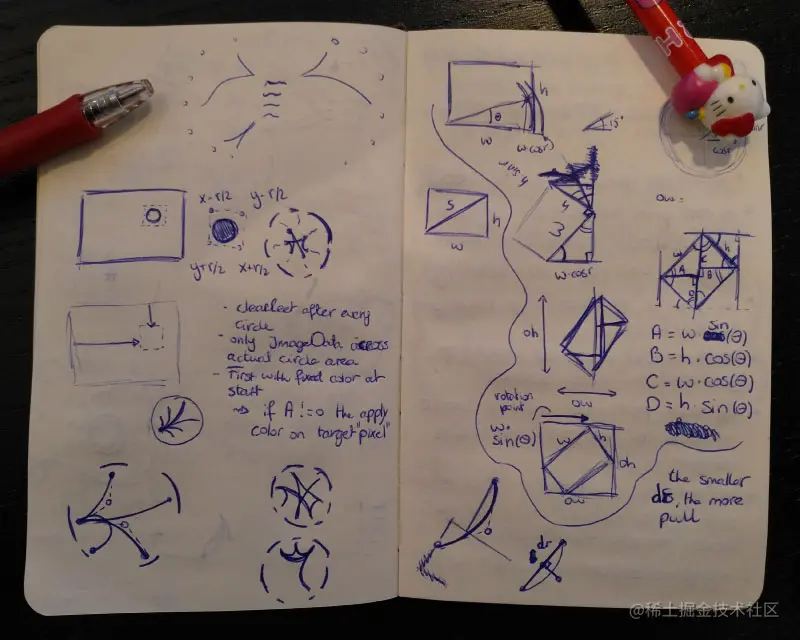 x-r/2 y-r/2
y+r/2 x+r/2
- clearRect after every
circle
- only ImageData access
actual circle area
- First with fixed color at
start
→ if A != 0 the apply
color on target "pixel"
h
θ
w
w·cos r
15°
cos r
s
h
w
4
3
w·cos r
ow =
w
h
A
B
A = w · sin(θ)
B = h · cos(θ)
C = w · cos(θ)
D = h · sin(θ)
oh
ow
rotation
point
w·
sin(θ)
w
h
oh
ow
the smaller
dr, the more
pull
dr
@稀土掘金技术社区